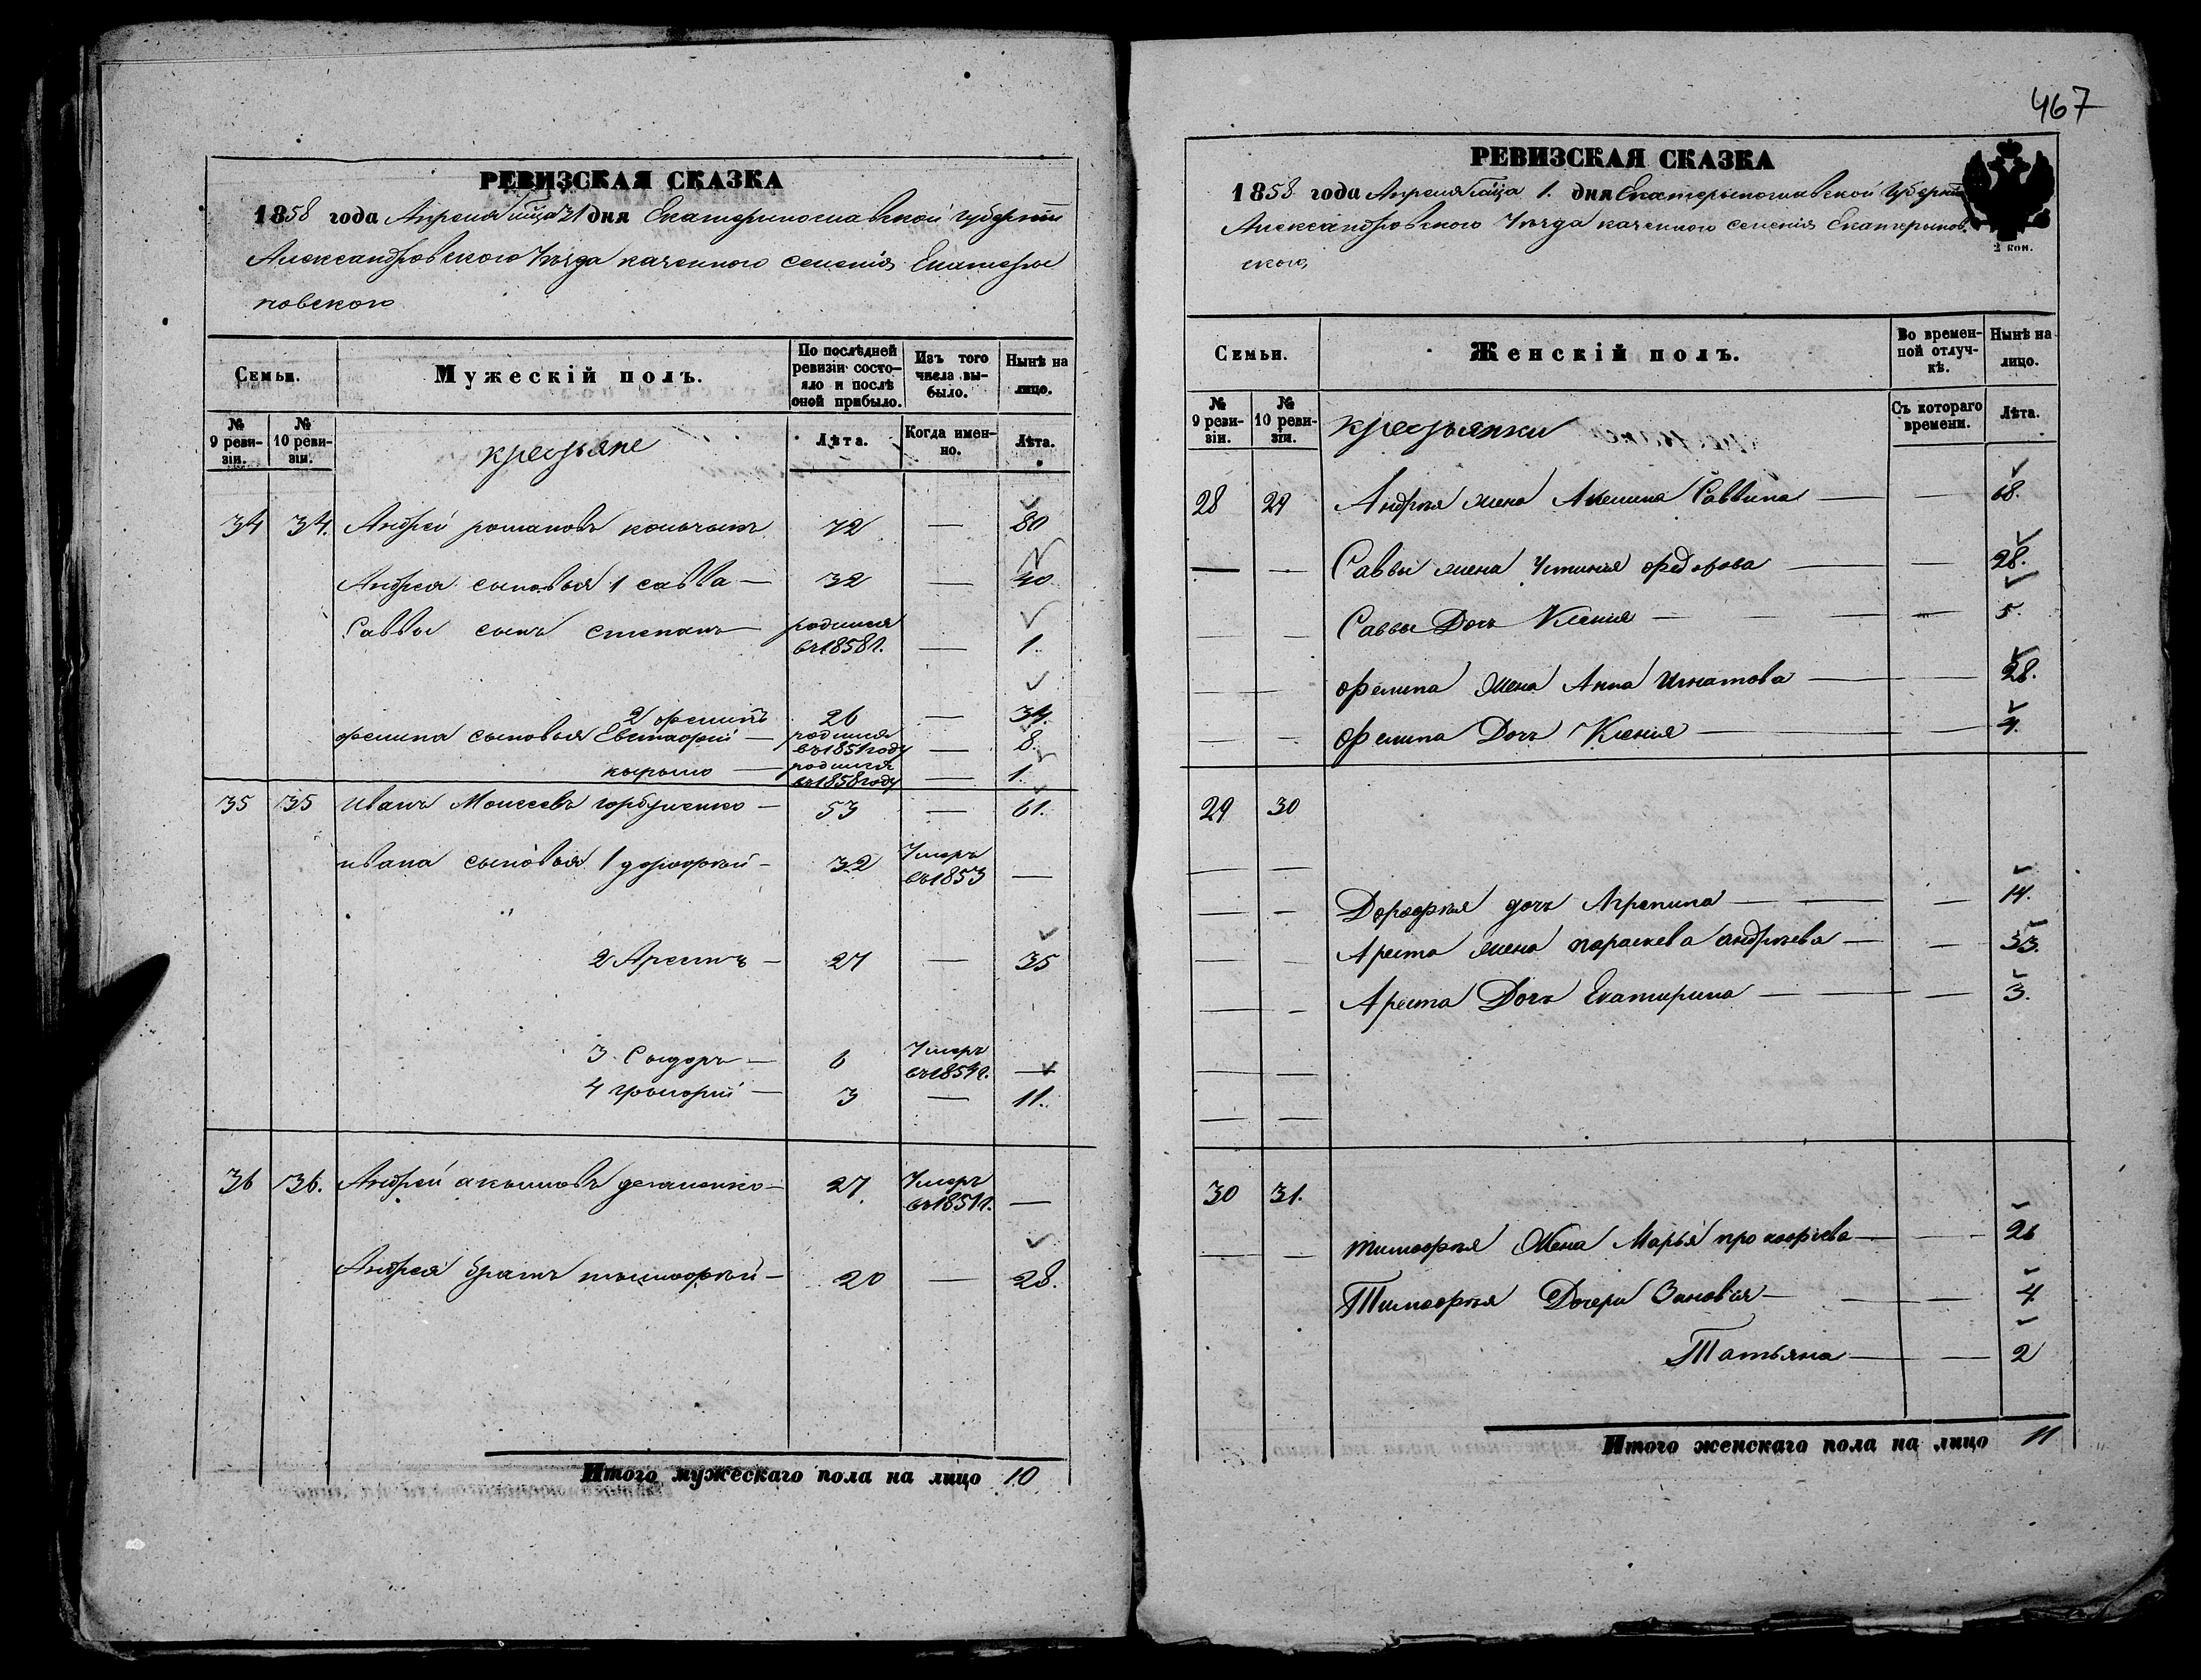 467
РЕВИЗСКАЯ СКАЗКА
1858 года Апреля 1 дня Екатеринославской губернии
Александровского Уѣзда казенного селения Екатери
новского
Семьи. Мужескій полъ. По послѣдней ревизіи состояло и послѣ оной прибыло. Изъ того числа выбыло. Нынѣ на лицо.
№ 9 ревизіи. № 10 ревизіи. крестьяне Лѣта. Когда именно. Лѣта.
34 34. Андрей романовъ 72 — 80
Андрея сыновья 1 савва — 32 — 40
Саввы сынъ степанъ — родился въ 1858 г. — 1.
2 филипъ 26 — 34.
филипа сыновья Евстафий — родился въ 1851 году — 8.
кырыло — родился въ 1858 году — 1.
35 35 иванъ Моисеевъ горбуненко — 53 — 61.
ивана сыновья 1 дорофѣй — 32 Умеръ въ 1853 —
2 Арестъ — 27 — 35
3 Сыдоръ — 6 Умеръ въ 1854 г. —
4 грыгорий — 3 — 11.
36 36. Андрей акымовъ — 27. Умеръ въ 1851 г. —
Андрея братъ тымофѣй — 20 — 28.
Итого мужескаго пола на лицо 10
РЕВИЗСКАЯ СКАЗКА
1858 года Апреля 1. дня Екатерынославской Губернии
Александровского Уѣзда казенного селения Екатерынов
ского,
2 коп.
Семьи. Женскій полъ. Во временной отлучкѣ. Нынѣ на лицо.
№ 9 ревизіи. № 10 ревизіи. крестьянки Съ котораго времени. Лѣта.
28 29 Андрѣя жена Акелина Саввина — — 68.
— — Саввы жена Устиния федорова — — 28.
— — Саввы Дочь Ксения — — — 5.
— — филипа жена Анна Игнатова — — 28.
— — филипа Дочь Ксения — — 4.
29 30
— —
— — Дорофѣя дочь Агрепина — — — 14.
— — Ареста жена параскева андрѣева — — 33.
— — Ареста Дочь Екатирина — — — 3.
— —
— —
30 31.
— — тимофѣя Жена Марья прокофиева — — 26
Тимофѣя Дочери Зиновия — — — 4.
Татьяна — — 2
Итого женскаго пола на лицо 11